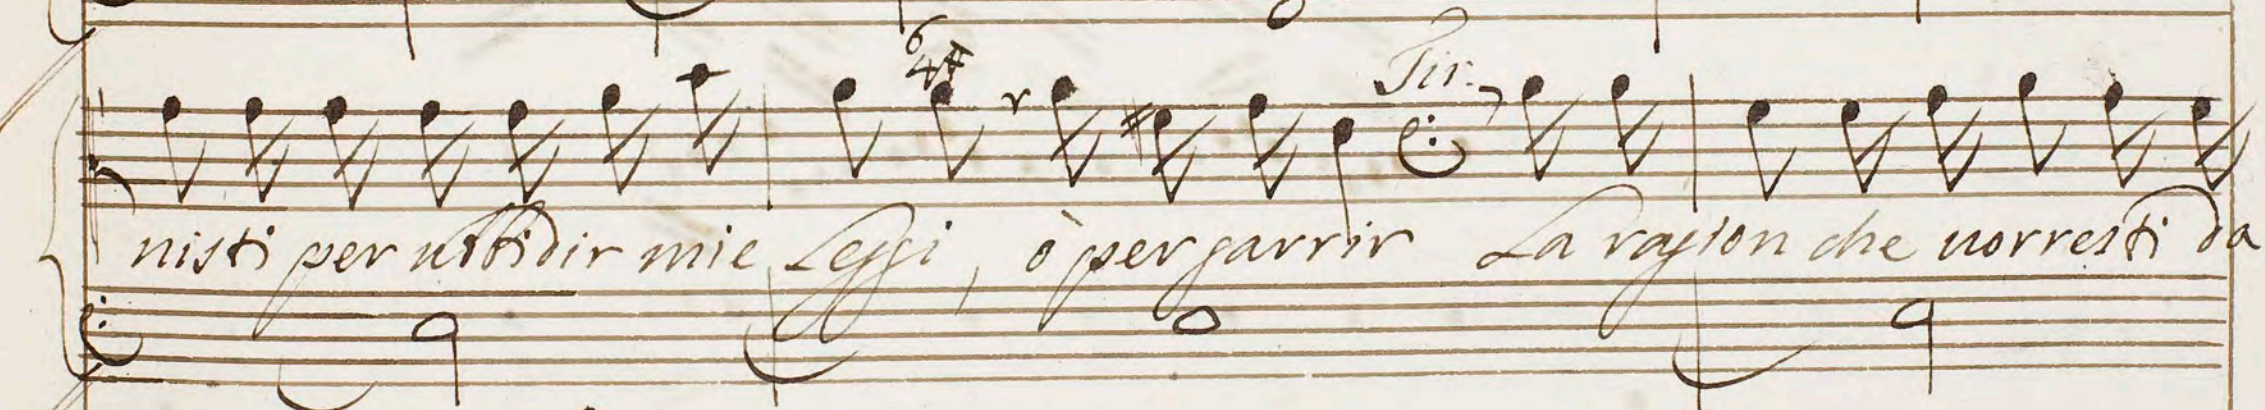 6
4#
Tir:
nisti per ubbidir mie Leggi, ò per garrir La ragion che uorresti da